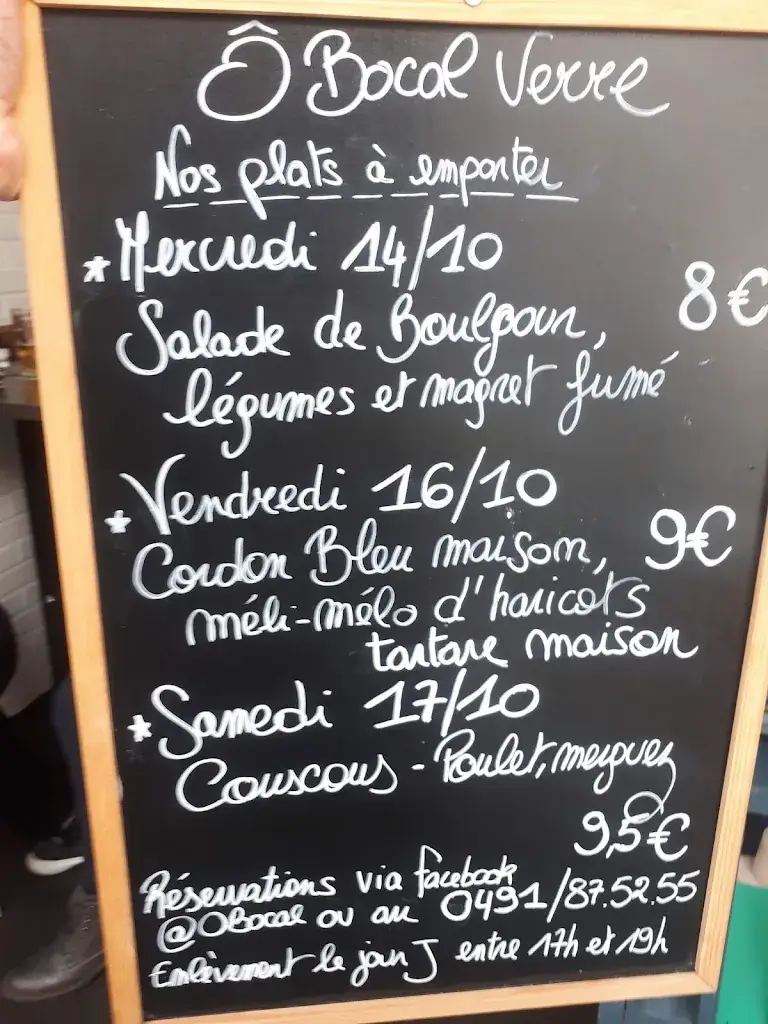 Ô Bocal Verre
Nos plats à emporter
* Mercredi 14/10
8€
Salade de Boulgour,
légumes et magret fumé
* Vendredi 16/10
Cordon Bleu maison, 9€
méli-mélo d'haricots
tartare maison
* Samedi 17/10
Couscous - Poulet, merguez
9,5€
Réservations via facebook
@OBocal ou au 0491/87.52.55
Enlèvement le jour J entre 17h et 19h